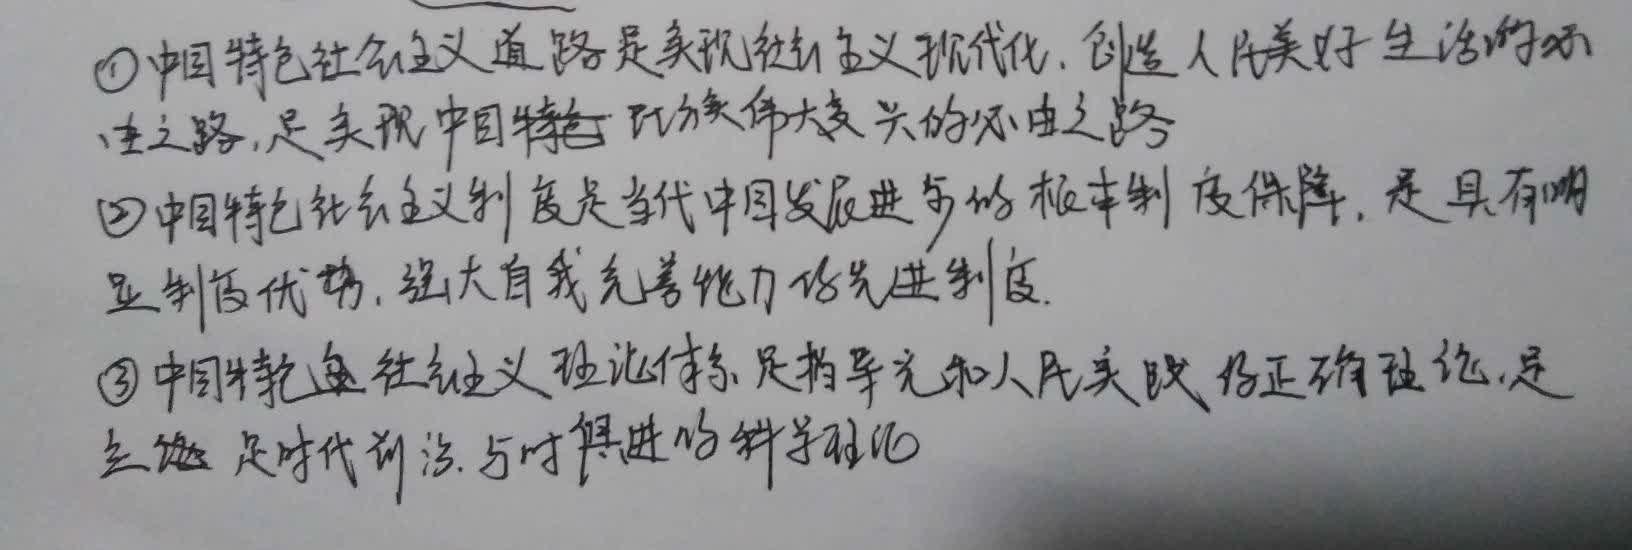 ①中国特色社会主义道路是实现社会主义现代化.创造人民美好生活的必
由之路,是实现中国特色民族伟大复兴的必由之路
②中国特色社会主义制度是当代中国发展进步的根本制度保障,是具有明
显制度优势,强大自我完善能力的先进制度.
③中国特色社会主义理论体系是指导党和人民实践的正确理论,是
立 是时代前沿.与时俱进的科学理论